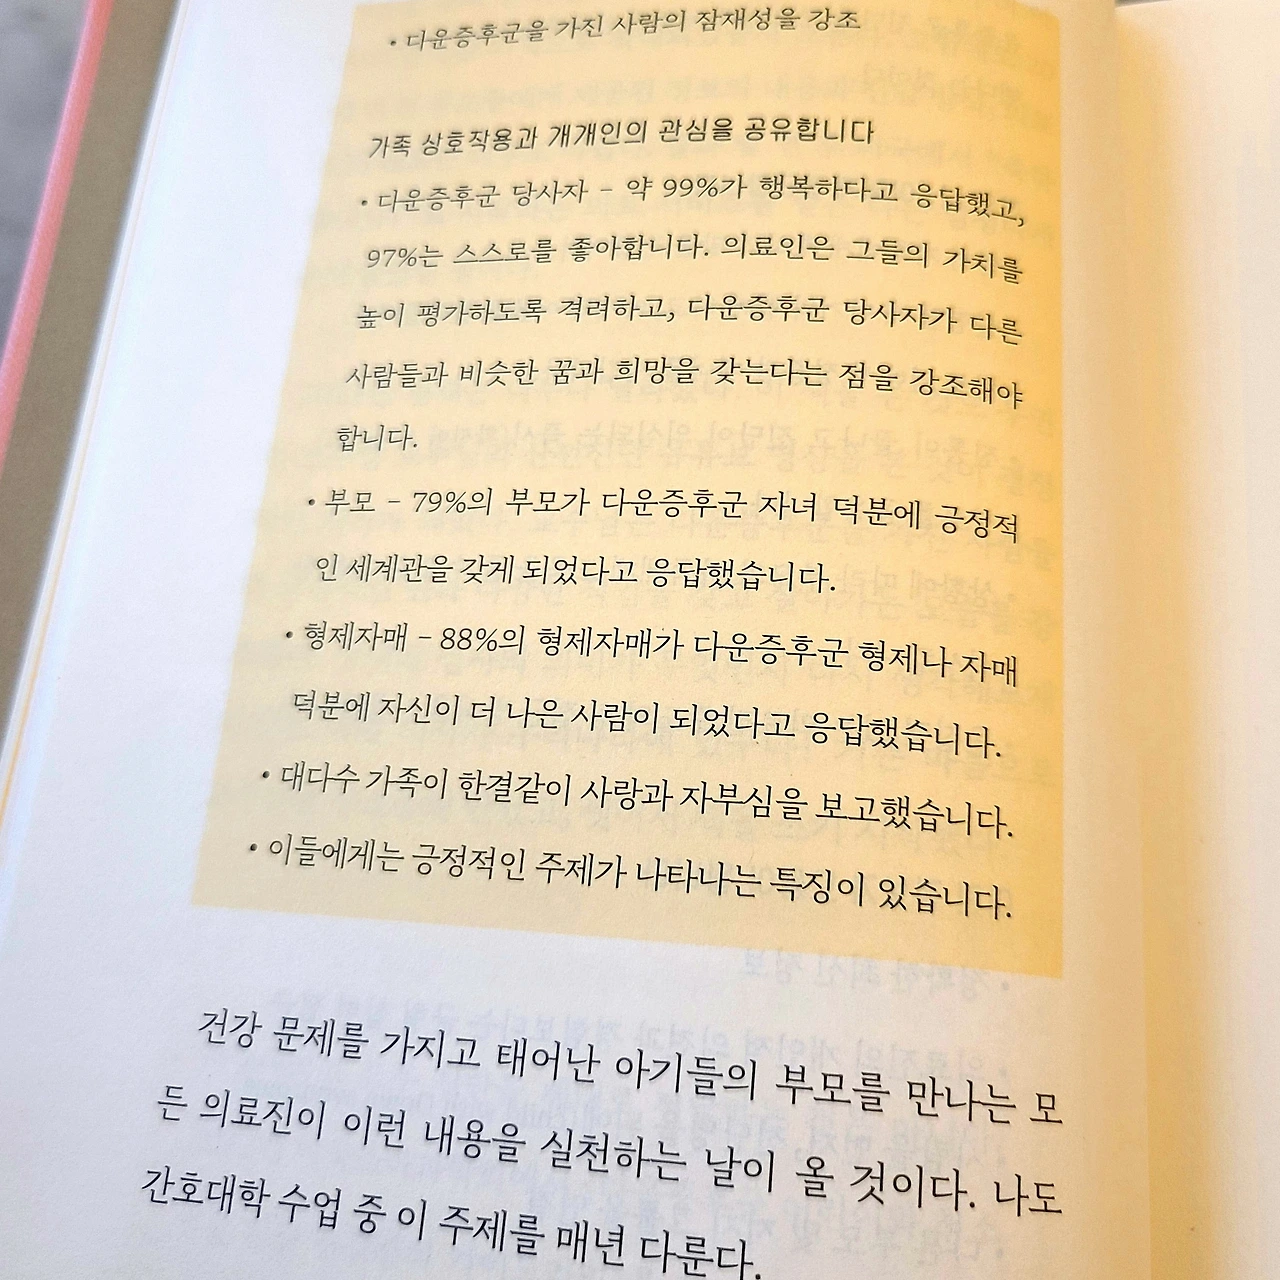 • 다운증후군을 가진 사람의 잠재성을 강조
가족 상호작용과 개개인의 관심을 공유합니다
• 다운증후군 당사자 - 약 99%가 행복하다고 응답했고,
97%는 스스로를 좋아합니다. 의료인은 그들의 가치를
높이 평가하도록 격려하고, 다운증후군 당사자가 다른
사람들과 비슷한 꿈과 희망을 갖는다는 점을 강조해야
합니다.
• 부모 - 79%의 부모가 다운증후군 자녀 덕분에 긍정적
인 세계관을 갖게 되었다고 응답했습니다.
• 형제자매 - 88%의 형제자매가 다운증후군 형제나 자매
덕분에 자신이 더 나은 사람이 되었다고 응답했습니다.
• 대다수 가족이 한결같이 사랑과 자부심을 보고했습니다.
• 이들에게는 긍정적인 주제가 나타나는 특징이 있습니다.
건강 문제를 가지고 태어난 아기들의 부모를 만나는 모
든 의료진이 이런 내용을 실천하는 날이 올 것이다. 나도
간호대학 수업 중 이 주제를 매년 다룬다.